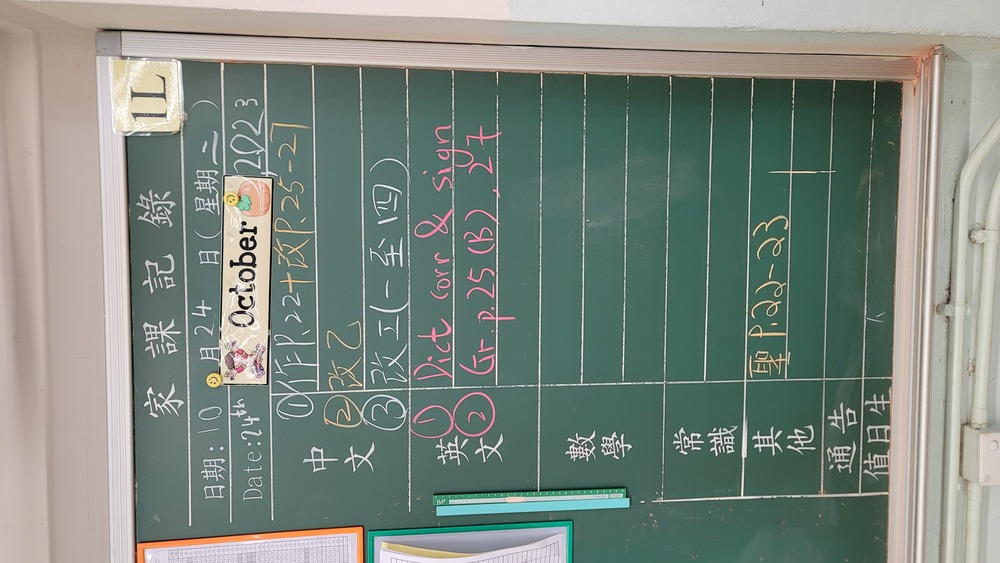 1L
家課記錄
日期: 10月24日(星期二)
Date: 24th October, 2023
中文 ①作P.22+改P.25-27
②改乙
③改工(一至四)
英文 ① Dict corr & sign
② Gr. p25 (B), 27
數學
常識
其他 聖P.22-23
通告
值日生